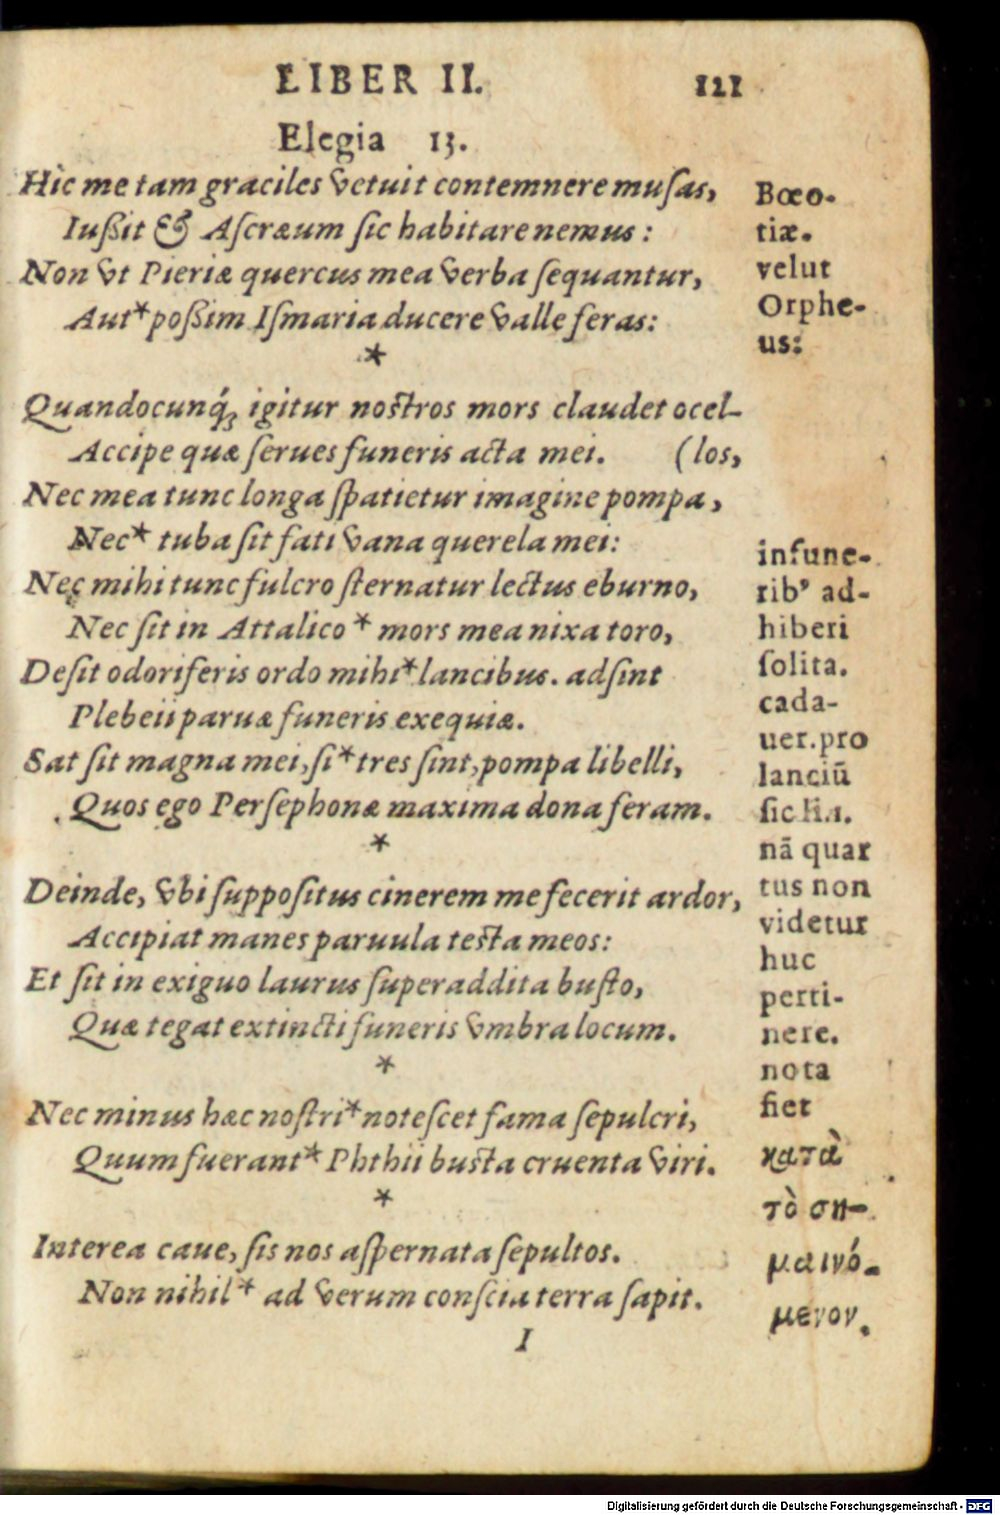 LIBER II. 121
Elegia 13.
Hic me tam graciles vetuit contemnere musas,
Iußit & Ascræum sic habitare nemus:
Non vt Pieriæ quercus mea verba sequantur,
Aut* poßim Ismaria ducere valle feras:
*
Quandocunq́; igitur nostros mors claudet ocel-
Accipe quæ serues funeris acta mei. (los,
Nec mea tunc longa spatietur imagine pompa,
Nec* tuba sit fati vana querela mei:
Nec mihi tunc fulcro sternatur lectus eburno,
Nec sit in Attalico * mors mea nixa toro,
Desit odoriferis ordo mihi* lancibus. adsint
Plebeii paruæ funeris exequiæ.
Sat sit magna mei, si* tres sint, pompa libelli,
Quos ego Persephonæ maxima dona feram.
*
Deinde, vbi suppositus cinerem me fecerit ardor,
Accipiat manes paruula testa meos:
Et sit in exiguo laurus superaddita busto,
Quæ tegat extincti funeris vmbra locum.
*
Nec minus hæc nostri* notescet fama sepulcri,
Quum fuerant* Phthii busta cruenta viri.
*
Interea caue, sis nos aspernata sepultos.
Non nihil* ad verum conscia terra sapit.
I
Bœo-
tiæ.
velut
Orphe-
us:
in fune-
rib⁹ ad-
hiberi
solita.
cada-
uer. pro
lanciũ
sic li.1.
nã quar
tus non
videtur
huc
perti-
nere.
nota
fiet
κατὰ
τὸ ση-
μαινό-
μενον.
Digitalisierung gefördert durch die Deutsche Forschungsgemeinschaft - DFG